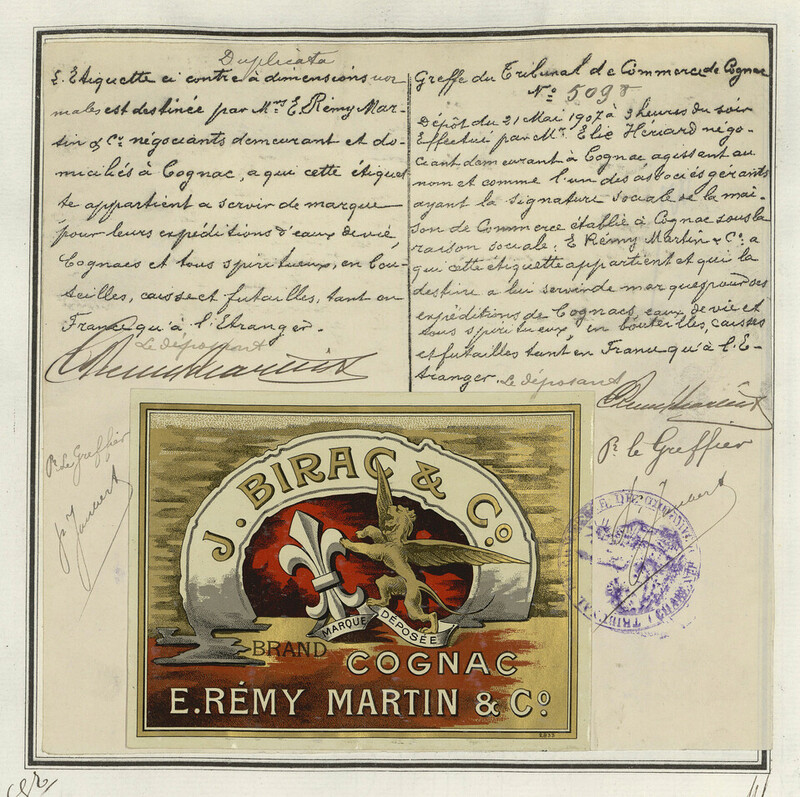 Duplicata
L'Etiquette ci contre à dimensions nor
males est destinée par Mrs E. Rémy Mar-
tin & Co négociants demeurant et do-
miciliés à Cognac, a qui cette étiquet
te appartient a servir de marque
pour leurs expéditions d'eaux de vie,
Cognacs et tous spiritueux, en bou-
teilles, caisses et futailles, tant en
France qu'à l'Etranger.
Le déposant
Pr le Greffier
Greffe du Tribunal de Commerce de Cognac
No 5098
Dépôt du 21 Mai 1907 à 3 heures du soir
Effectué par Mr. Elie Hériard négo-
ciant demeurant à Cognac agissant au
nom et comme l'un des associés gérants
ayant la signature sociale de la mai-
son de Commerce établie à Cognac sous la
raison sociale: E Rémy Martin & Co. a
qui cette étiquette appartient et qui la
destine a lui servir de marque pour ses
expéditions de Cognacs, eaux de vie et
tous spiritueux, en bouteilles, caisses
et futailles tant en France qu'à l'E-
tranger. Le déposant
Pr le Greffier
J. BIRAC & Co
MARQUE DÉPOSÉE
BRAND
COGNAC
E. RÉMY MARTIN & Co